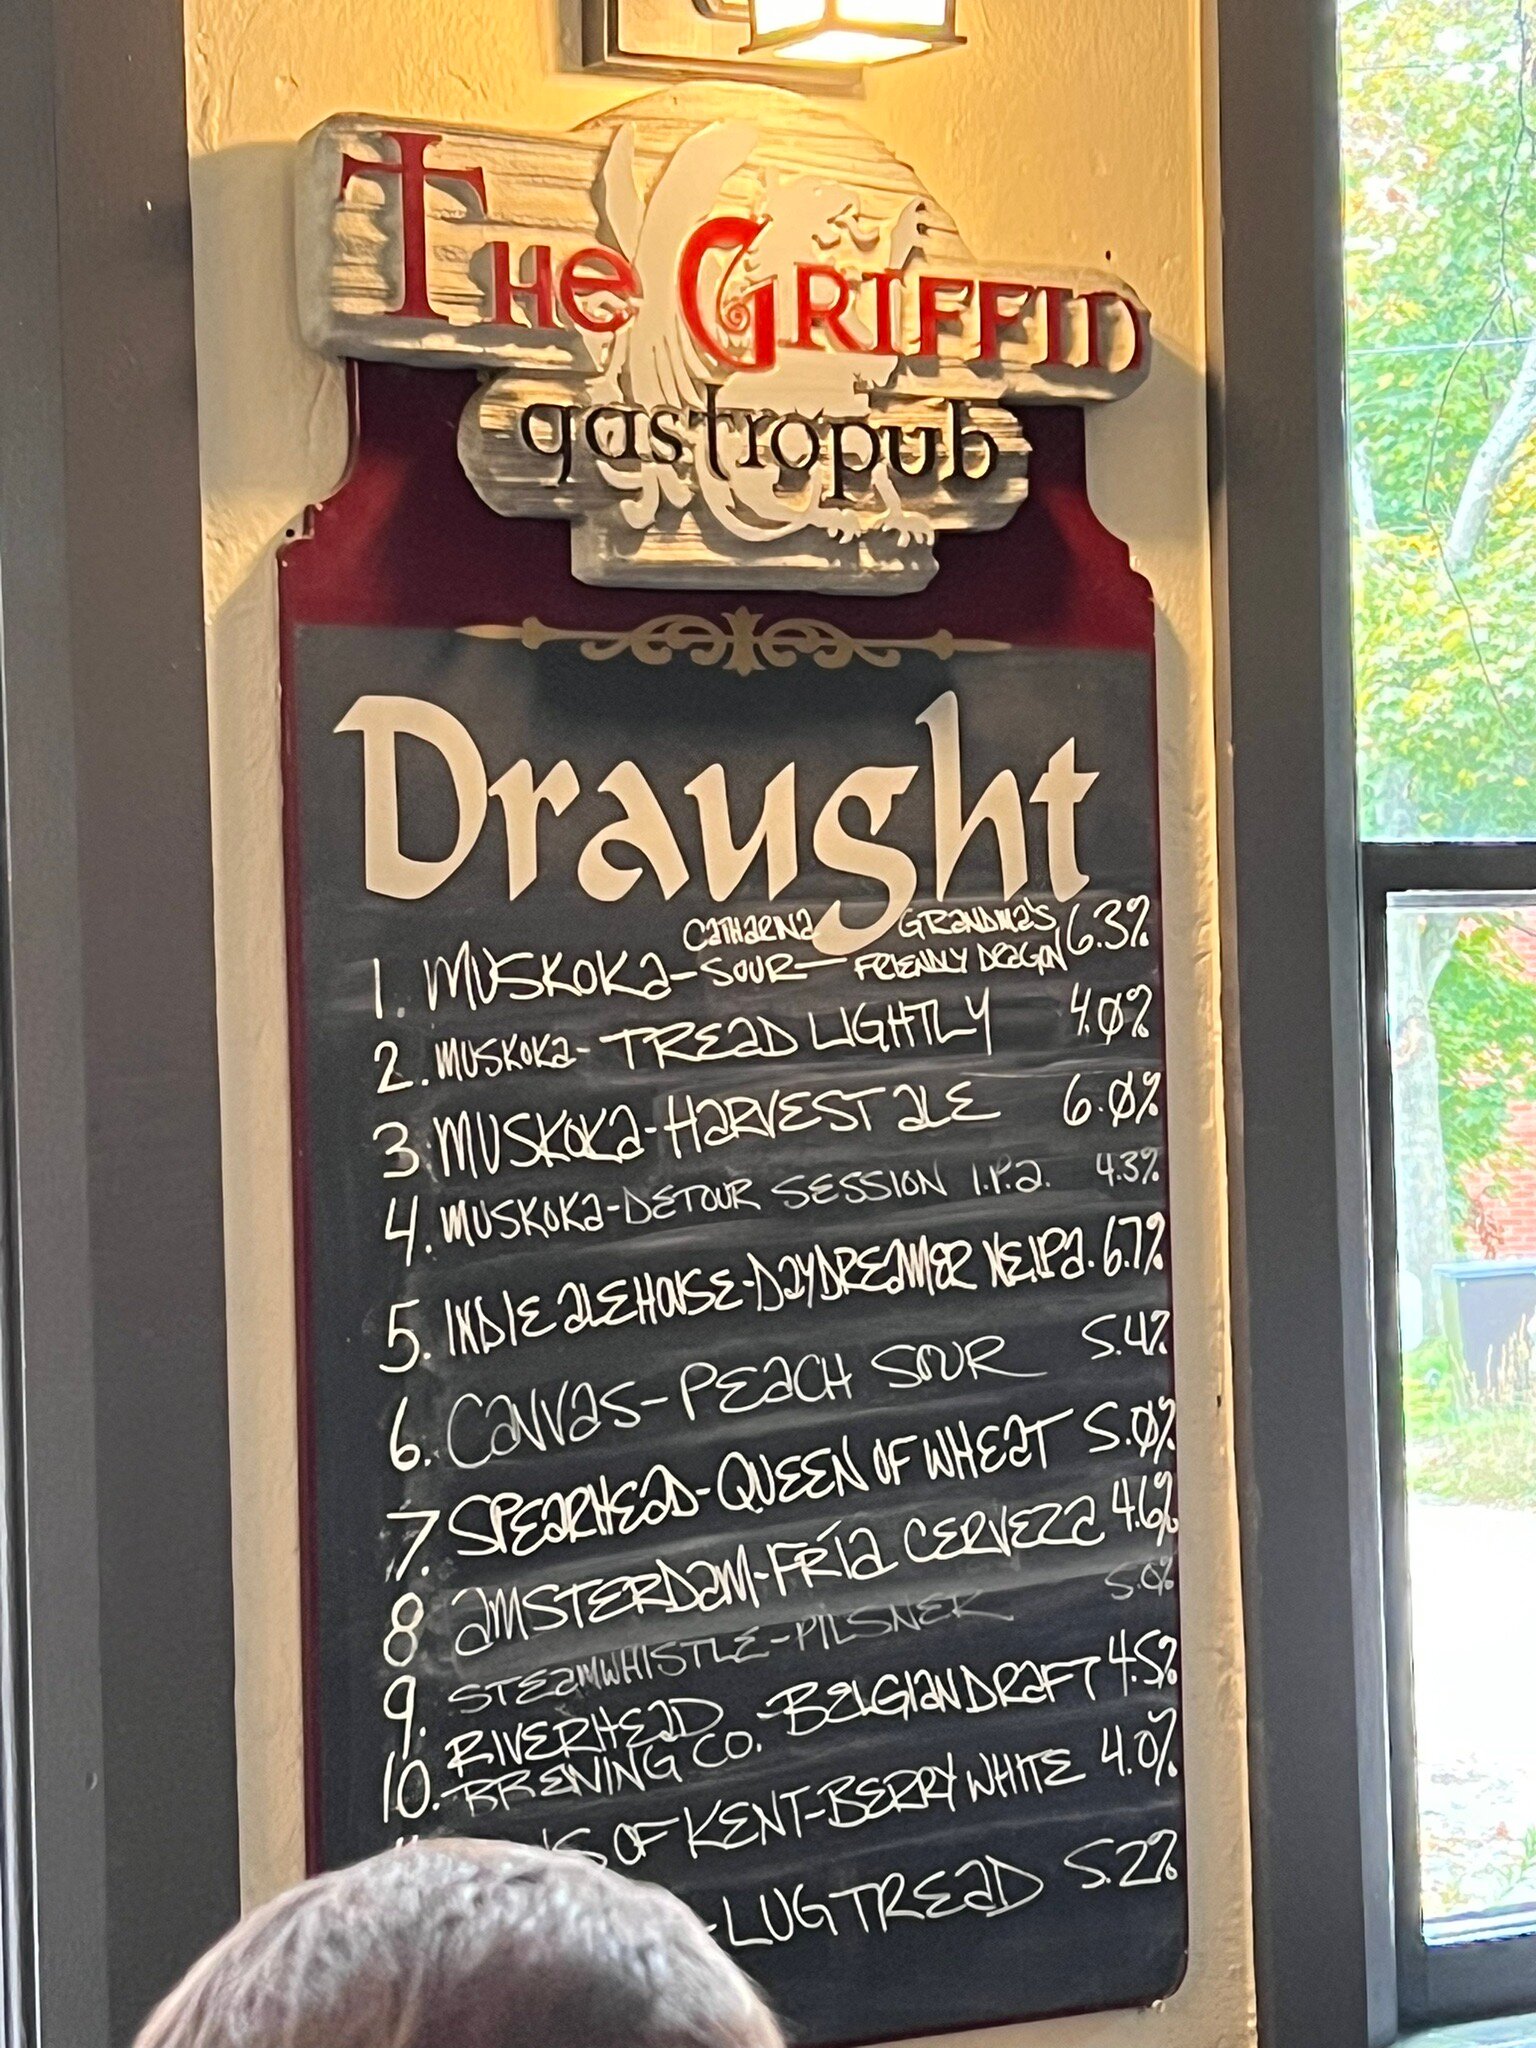 The Griffin
gastropub
Draught
1. MUSKOKA - CATHARINA SOUR - GRANDMA'S FRIENDLY DRAGON 6.3%
2. MUSKOKA - TREAD LIGHTLY 4.0%
3. MUSKOKA - HARVEST ALE 6.0%
4. MUSKOKA - DETOUR SESSION I.P.A. 4.3%
5. INDIE ALEHOUSE - DAYDREAMER N.E.I.P.A. 6.7%
6. CANVAS - PEACH SOUR 5.4%
7. SPEARHEAD - QUEEN OF WHEAT 5.0%
8. AMSTERDAM - FRÍA CERVEZA 4.6%
9. STEAMWHISTLE - PILSNER 5.0%
10. RIVERHEAD BREWING CO. - BELGIAN DRAFT 4.5%
OF KENT - BERRY WHITE 4.0%
- LUG TREAD 5.2%